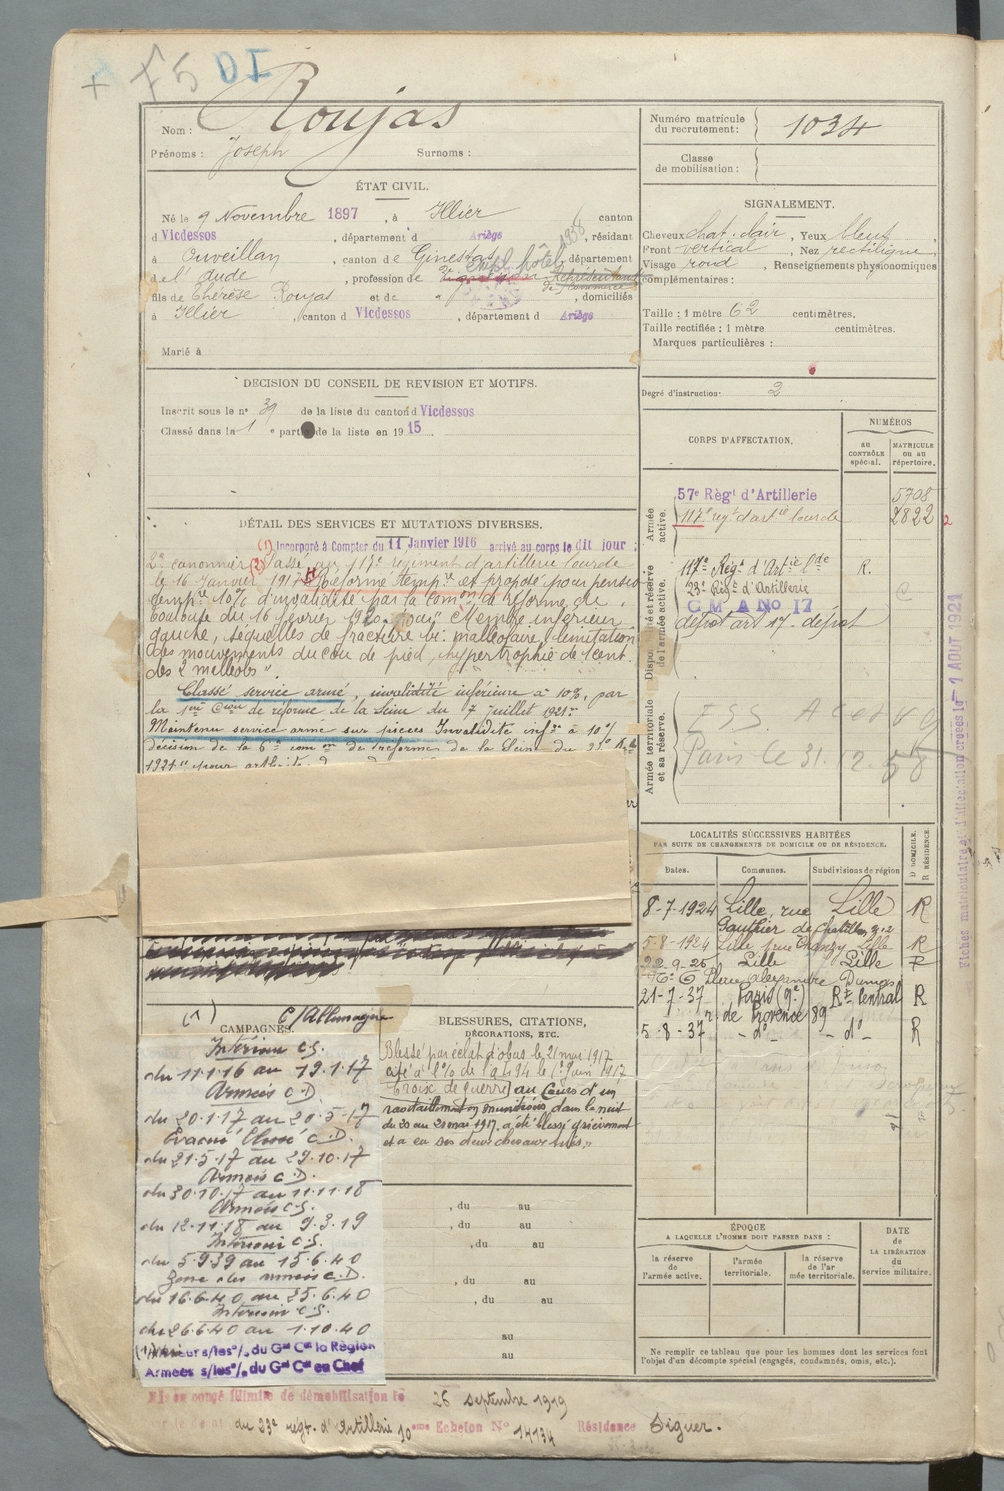 + F5 DI
Nom : Roujas
Prénoms : Joseph Surnoms :
Numéro matricule du recrutement : 1034
Classe de mobilisation :
ÉTAT CIVIL.
Né le 9 Novembre 1897, à Illier canton
d Vicdessos, département d Ariège, résidant
à Ouveillan, canton de Ginestas, département
de l'Aude, profession de empl. hôtel 1938 Représentant de commerce
fils de Thérèse Roujas et de "", domiciliés
à Illier, canton d Vicdessos, département d Ariège
Marié à
SIGNALEMENT.
Cheveux chat. clair, Yeux bleus,
Front vertical, Nez rectiligne,
Visage rond, Renseignements physionomiques
complémentaires :
Taille : 1 mètre 62 centimètres.
Taille rectifiée : 1 mètre centimètres.
Marques particulières :
Degré d'instruction : 2
DECISION DU CONSEIL DE REVISION ET MOTIFS.
Inscrit sous le n° 39 de la liste du canton d Vicdessos
Classé dans la 1 e partie de la liste en 1915
DÉTAIL DES SERVICES ET MUTATIONS DIVERSES.
(1) Incorporé à Compter du 11 Janvier 1916 arrivé au corps le dit jour ;
2e canonnier. (2) Passé au 117e régiment d'artillerie lourde
le 16 Janvier 1917. Réformé tempre et proposé pour pension
tempre 10% d'invalidité par la Comon de réforme de
Toulouse du 16 février 1920 pour "membre inférieur
gauche, séquelles de fracture bi. malléolaire, limitation
des mouvements du cou de pied, hypertrophie de 1 cent.
des 2 malléoles".
Classé service armé, invalidité inférieure à 10%, par
la 1ère Cion de réforme de la Seine du 7 Juillet 1921.
Maintenu service armé sur pièces Invalidité infre à 10%
décision de la 6e comon de réforme de la Seine du 21
1921 "pour
CORPS D'AFFECTATION.
NUMÉROS
au CONTRÔLE spécial.
MATRICULE ou au répertoire.
Armée active.
57e Régt d'Artillerie 5708
117e régt d'artie lourde 2822
Disponibilité et réserve de l'armée active.
117e Régt d'Artie Lde R.
23e Régt d'Artillerie
C M A No 17
dépôt art 17 - dépôt
Armée territoriale et sa réserve.
Paris le 31.12.58
Fiches matriculaire et d'affectation créées le 1 AOUT 1921
LOCALITÉS SUCCESSIVES HABITÉES
PAR SUITE DE CHANGEMENTS DE DOMICILE OU DE RÉSIDENCE.
Dates. Communes. Subdivisions de région D DOMICILE. R RÉSIDENCE.
8-7-1924 Lille, rue Lille R
Gauthier de Chatillon, 32
5-8-1924 Lille, rue Chanzy Lille R
22-9-26 Lille Lille R
Place Alexandre Dumas
21-7-37 Paris (9e) Rt Central R
r. de Provence 89
5-8-37 - d° - - d° - R
(1) C/Allemagne
CAMPAGNES.
Intérieur C.S.
du 11.1.16 au 19.1.17
Armées C.D.
du 20.1.17 au 20.5.17
Evacué blessé C.D.
du 21.5.17 au 29.10.17
Armées C.D.
du 30.10.17 au 11.11.18
Armées C.S.
du 12.11.18 au 9.3.19
Intérieur C.S.
du 5.9.39 au 15.6.40
Zone des armées C.D.
du 16.6.40 au 25.6.40
Intérieur C.S.
du 26.6.40 au 1.10.40
s/les °/. du Gal Ct la Région
Armées s/les °/. du Gal Ct en Chef
BLESSURES, CITATIONS,
DÉCORATIONS, ETC.
Blessé par éclat d'obus le 21 mai 1917
Cité à l'O/ de l'A L 94 le 1er Juin 1917
Croix de guerre au Cours d'un
ravitaillement en munitions dans la nuit
du 20 au 21 mai 1917, a été blessé grièvement
et a eu ses deux chevaux tués."
, du au
, du au
, du au
, du au
, du au
au
au
ÉPOQUE
A LAQUELLE L'HOMME DOIT PASSER DANS :
la réserve de l'armée active.
l'armée territoriale.
la réserve de l'armée territoriale.
DATE de LA LIBÉRATION du service militaire.
Ne remplir ce tableau que pour les hommes dont les services font
l'objet d'un décompte spécial (engagés, condamnés, omis, etc.).
Mis en congé illimité de démobilisation le 26 septembre 1919
du 23e régt. d'Artillerie 10eme Echelon N° 14134 Résidence Siguer.